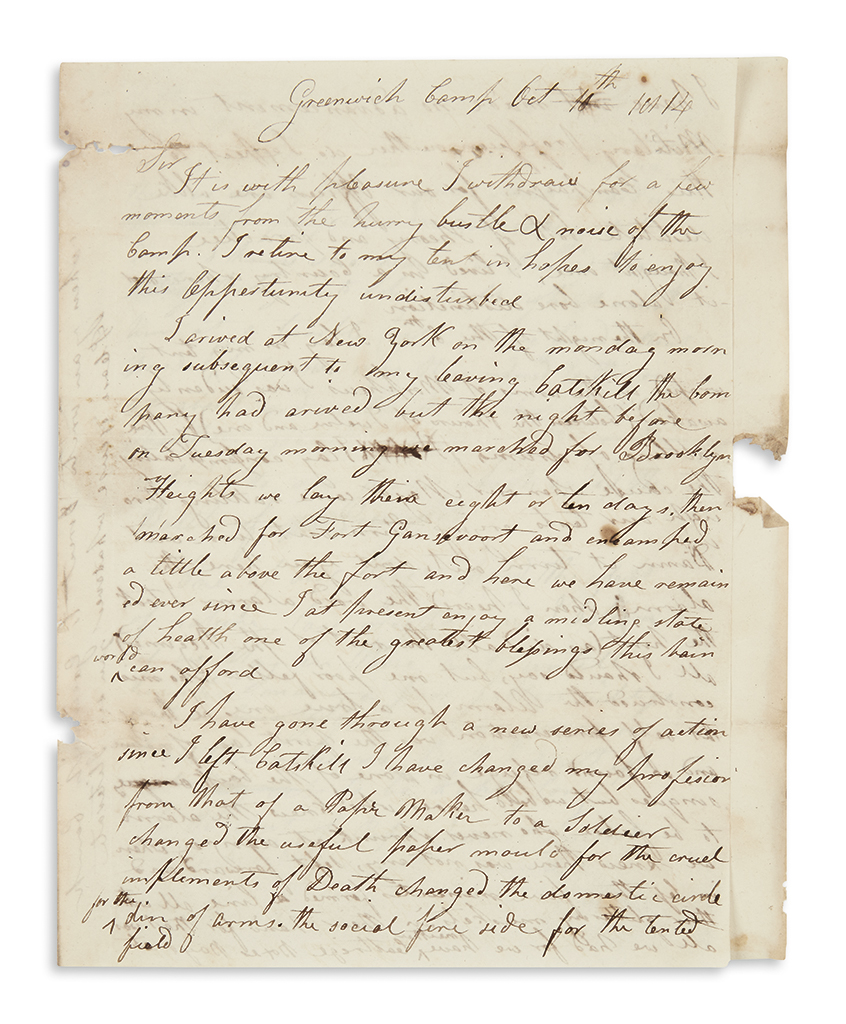 Greenwich Camp Oct th 1814
Sir
It is with pleasure I withdraw for a few
moments from the hurry bustle & noise of the
Camp. I retire to my tent in hopes to enjoy
this Oppertunity undisturbed
I arived at New York on the monday morn
ing subsequent to my leaving Catskill the com
pany had arived but the night before
on Tuesday morning we marched for Brooklyn
Heights we lay their eight or ten days, then
marched for Fort Gansevoort and encamped
a little above the fort and here we have remain
ed ever since I at present enjoy a midling state
of health one of the greatest blessings this vain
world can afford
I have gone through a new series of action
since I left Catskill I have changed my profesion
from that of a Paper Maker to a Soldier
changed the useful paper mould for the cruel
implements of Death changed the domestic circle
for the din of arms. the social fire side for the tented
field